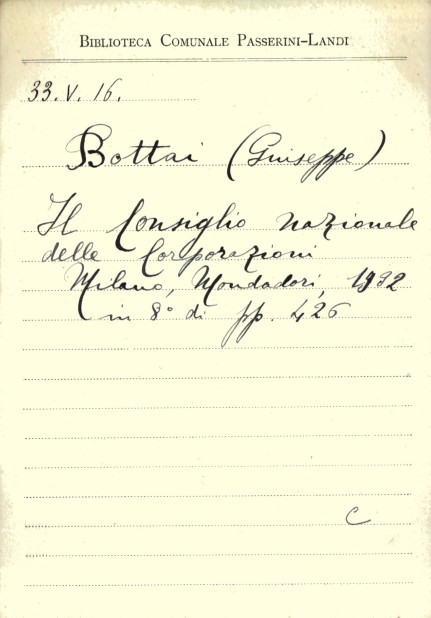 BIBLIOTECA COMUNALE PASSERINI-LANDI
33. V. 16.
Bottai (Giuseppe)
Il Consiglio nazionale
delle Corporazioni
Milano, Mondadori, 1932
in 8° di pp. 426
C